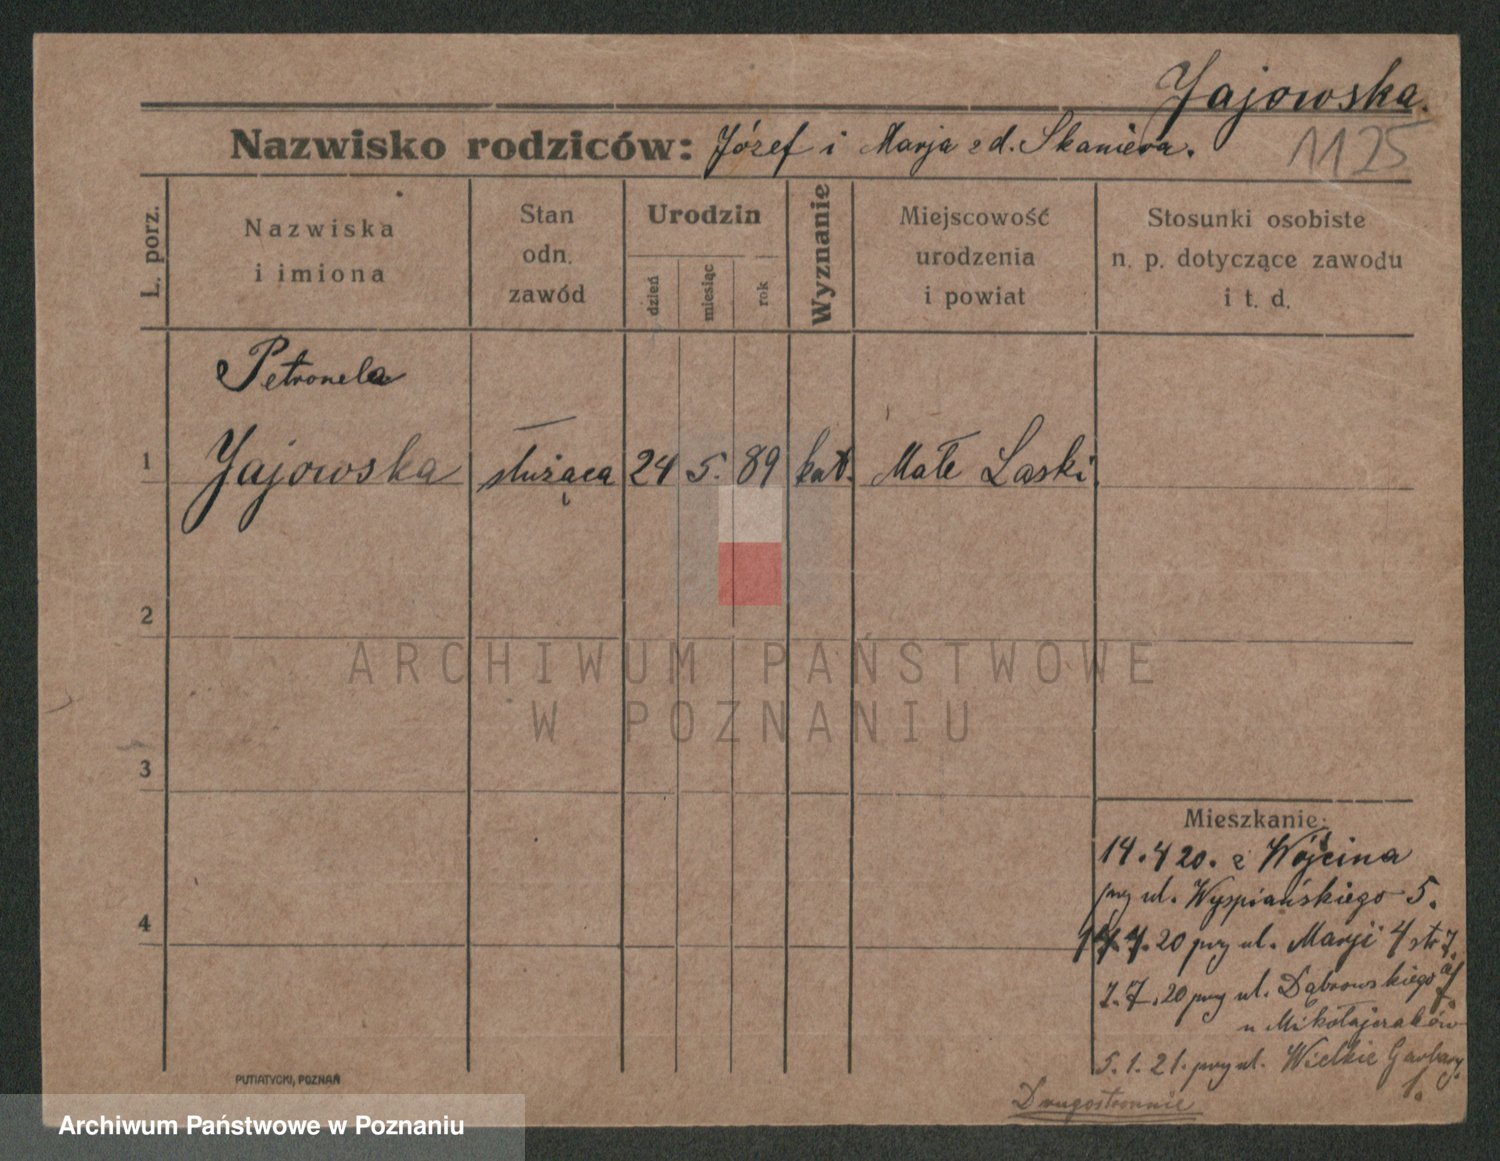 Jajowska.
Nazwisko rodziców: Józef i Marja z d. Skaniera.
1125
L. porz.
Nazwiska
i imiona
Stan
odn.
zawód
Urodzin
dzień
miesiąc
rok
Wyznanie
Miejscowość
urodzenia
i powiat
Stosunki osobiste
n. p. dotyczące zawodu
i t. d.
Petronela
1 Jajowska służąca 24 5. 89 kat. Małe Laski
2
ARCHIWUM PAŃSTWOWE
W POZNANIU
3
Mieszkanie:
14.4 20. z Wójcina
przy ul. Wyspiańskiego 5.
4
7.20 przy ul. Marji 4 str
7.7.20 przy ul. Dąbrowskiego
u Mikołajczaków
5.1.21. przy ul. Wielkie Garbary
1.
Drugostronnie
PUTIATYCKI, POZNAŃ
Archiwum Państwowe w Poznaniu